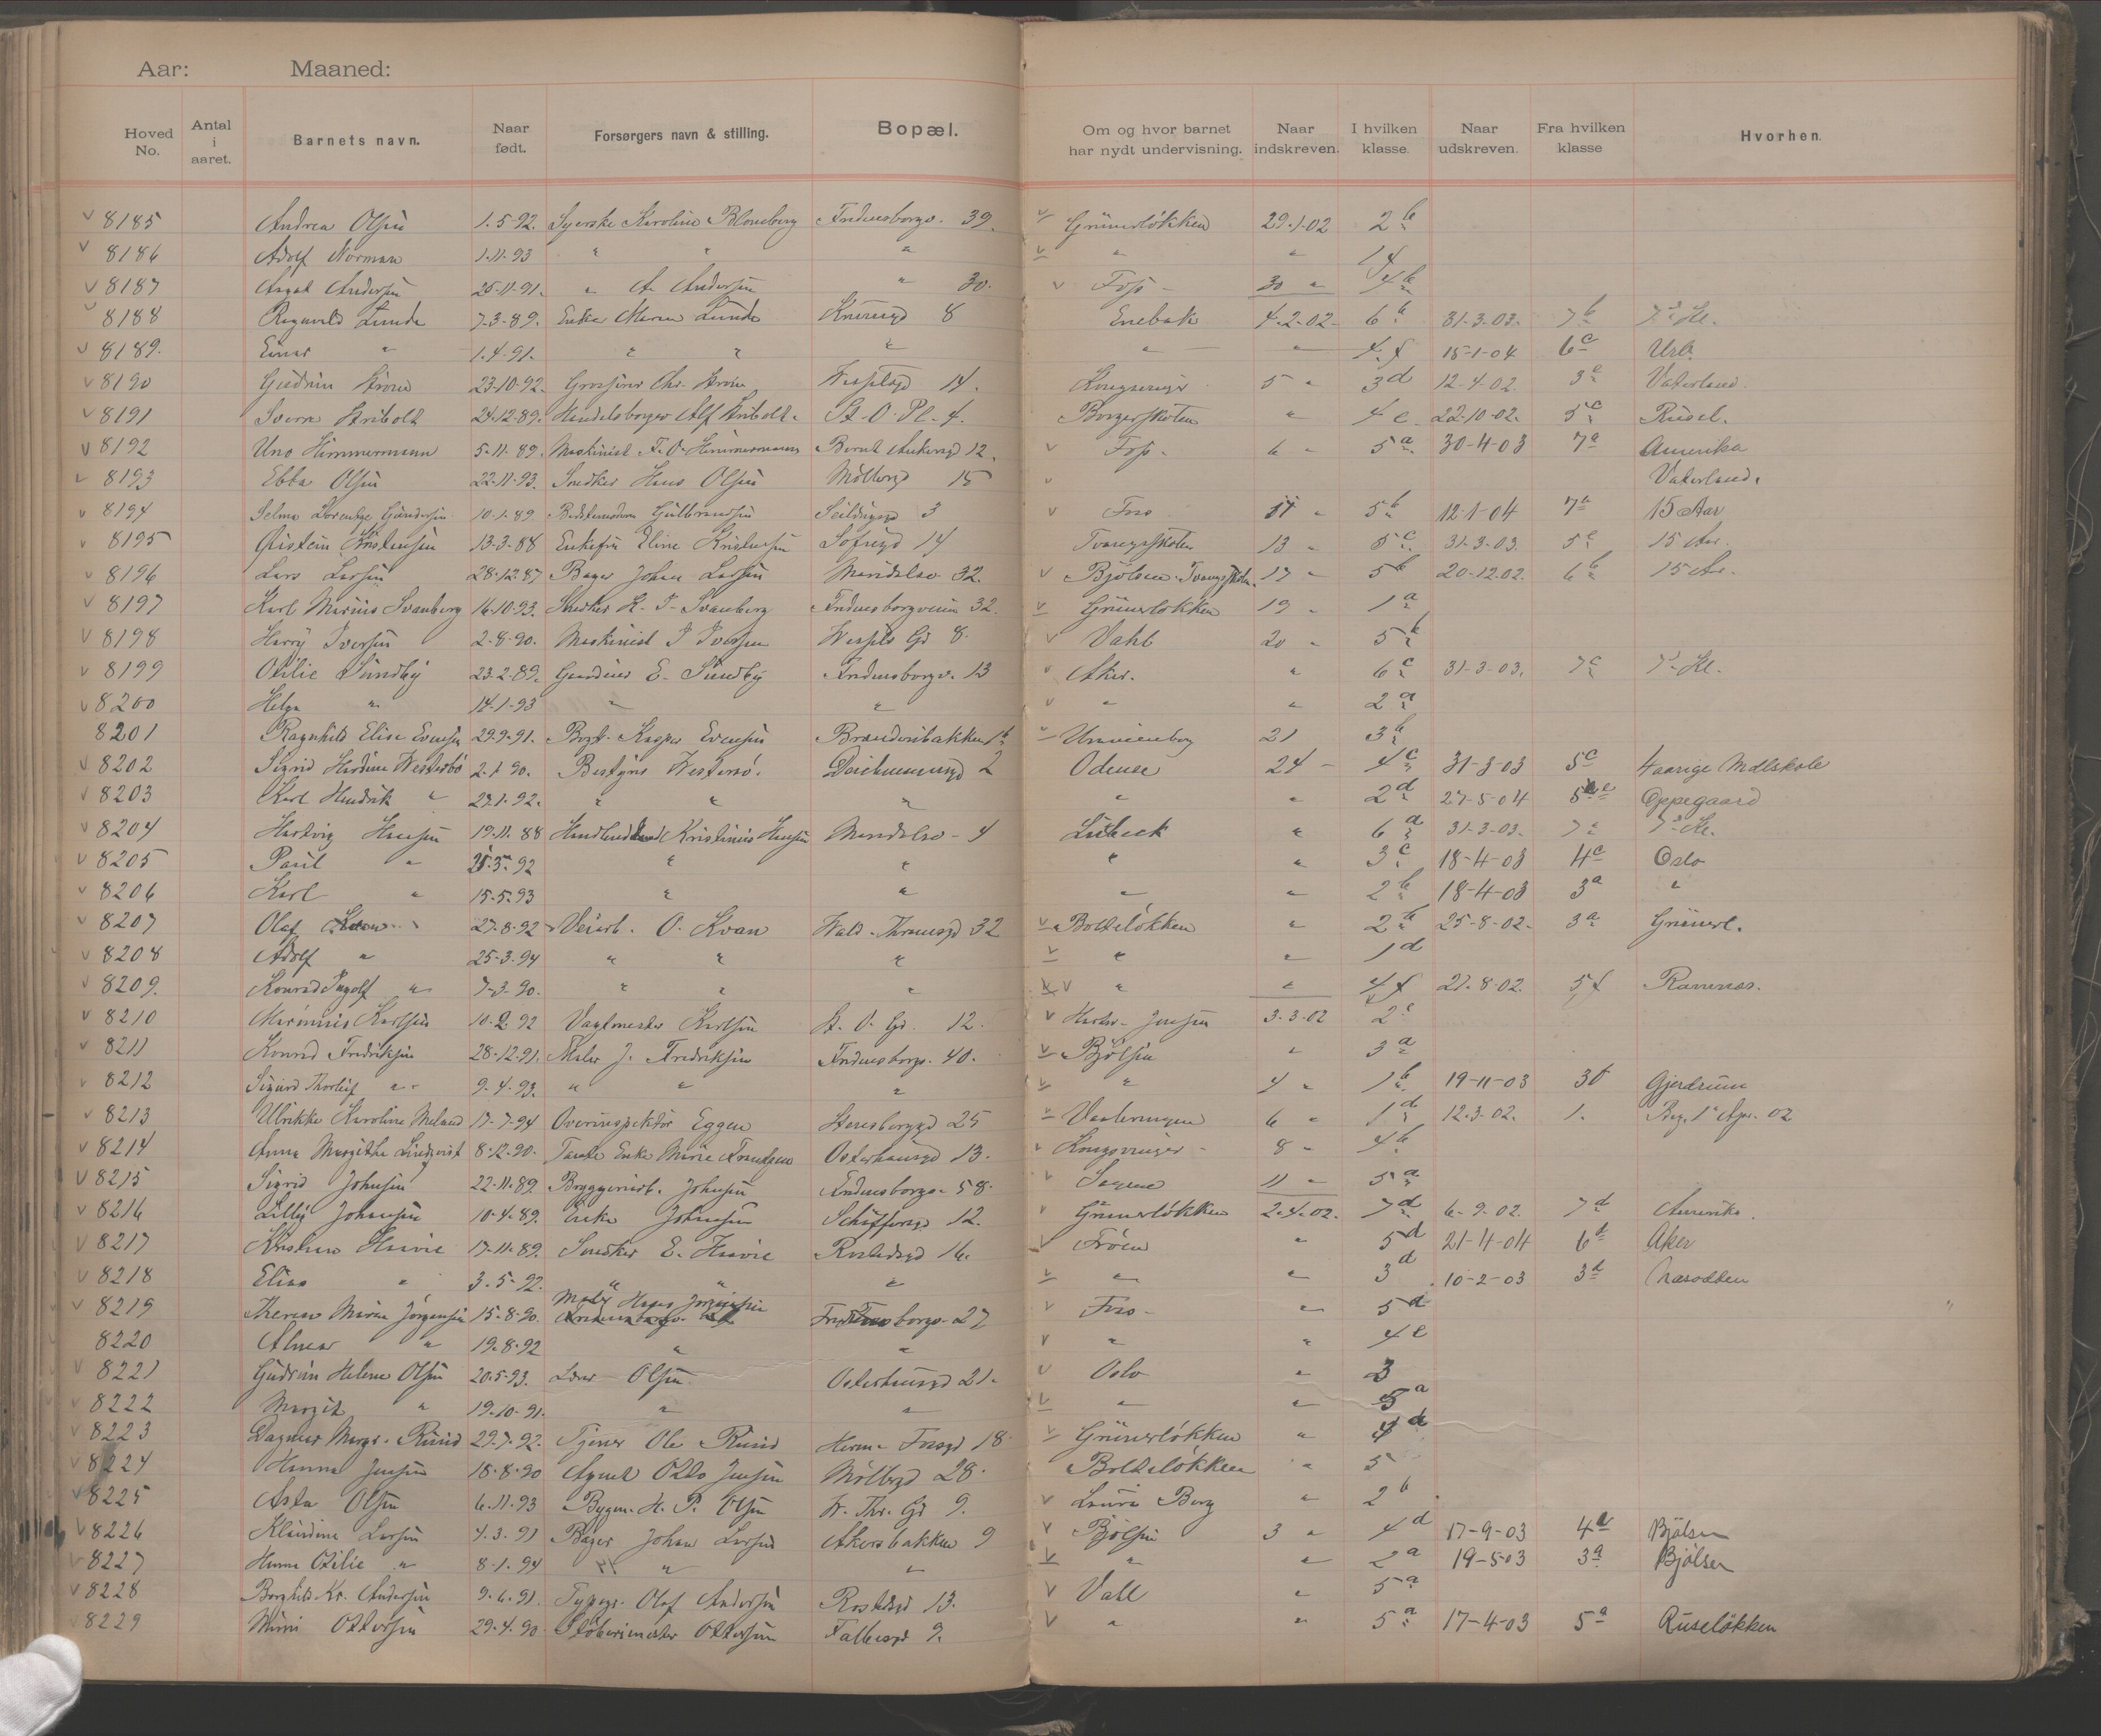 Aar: Maaned:
Hoved No. Antal i aaret. Barnets navn. Naar født. Forsørgers navn & stilling. Bopæl. Om og hvor barnet har nydt undervisning. Naar indskreven. I hvilken klasse. Naar udskreven. Fra hvilken klasse Hvorhen.
8185 Andrea Olsen 1.5-92. Syerske Karoline Blomberg 39. Grünerløkken 29.1-02 2 b
8186 Adolf Norman 1-11-93 " " " " "
8187 Andersen 25-11-91. " A. Andersen " 30. Foss - 30 "
8188 Ragnvald Lunde 7-3-89. Enke Maren Lunde 8 Enebak 4-2-02- 6 b 31-3-03. 7 b
8189. Einar " 1.4-91. " " " " " 4 f 15-1-04 6 c
8190 Gudrun Strøm 23-10-92. Grosserer Chr. Strøm Wesselsgd 14. Kongsvinger 5 " 3 d 12-4-02. 3 Vaterland.
8191 Sverre Stribolt 24-12-89. Handelsborger Alf Stribolt. St. O. Pl. 4. Borgerskolen " 4 e 22-10-02. 5 c Rusel.
8192 Uno Himmermann 5-11-89. Maskinist F. O. Himmermann Bernt Ankersgd 12. Foss. 6 " 5 a 30-4-03 7 a Amerika
8193 Ebba Olsen 22-11-93. Snedker Hans Olsen Møllergd 15 Vaterland.
8194 Selma 10-1-89. 3 Foss " 5 b 12-1-04 7 a 15 Aar
8195 Øistein Kristensen 13-3-88 Enkefru Eline Kristensen Sofiegd 14 Tvangsskolen 13 " 5 c 31-3-03. 5 c 15 Aar.
8196 Lars Larsen 28-12-87 Bager Johan Larsen 32. Bjølsen Tvangsskolen 17 " 5 b 20-12-02. 6 b 15 Aar.
8197 Karl Marius Svanberg 16-10-93. Snedker Svanberg 32. Grünerløkken 19 " 1 a
8198 Harry Iversen 2-8-90. Maskinist I Iversen Wessels Gd 8. Vahl 20 " 5 b
8199 Otilie Sundby 23-2-89. E. Sundby 13 Aker. " 6 c 31-3-03. 7 c
8200 Helga " 14-1-93 " " " " 2 a
8201 Ragnhild Elise Evensen 29-9-91. Kasper Evensen 21 3 b
8202 Sigrid 2-1 90. Bestyrer 2 Odense 24 - 4 c 31-3-03 5 c 4aarige Mdlskole
8203 Karl Hendrik " 27.1-92. " " " " " 2 d 27-5-04 Oppegaard
8204 Hartvig Hansen 19-11-88 Kristinius Hansen 4 Lübeck " 6 a 31-3-03. 7
8205 Paul " 92 " " " " 3 c 18-4-03 4 c Oslo
8206 Karl " 15-5-93 " " " " 2 b 18-4-03 3 a "
8207 Olaf 27-8-92 Veiarb. O. Kvan Wald. Thranesgd 32 Bolteløkken " 2 b 25-8-02. 3 a Grünerl.
8208 Adolf " 25-3-94 " " " " " 1 d
8209. Konrad Ingolf " 7-3-90. " " " " " 4 f 21-8-02. 5 f
8210 Karlsen 10-2-92 Vagtmester Karlsen St. O. Gd. 12. 3-3-02 2 c
8211 Konrad Fredriksen 28-12-91. Maler J. Fredriksen 40. Bjølsen " 3 a
8212 Sigurd Thorleif " 9-4-93. " " " " 4 " 1 b 19-11-03 Gjerdrum
8213 Ulrikke Karoline 17-7-94 Overinspektør Eggen Stensberggd 25 Vaalerengen 6 " 1 d 12-3-02. 1.
8214 Anna Margithe Lindqvist 8-12-90. Tante Enke Marie Frantzen Osterhausgd 13. Kongsvinger - 8 " 4 b
8215 Sigrid Johnsen 22-11-89. Bryggeriarb. Johnsen 58. Sagene 11 " 5 a
8216 Lilly Johansen 10-4-89. Enke Johansen 12. Grünerløkken 2-4-02. 7 d 6-9-02. 7 d Amerika.
8217 17-11-89. Snedker E. Rostedsgd 16. Frøen " 5 d 21-4-04 6 Aker
8218 Elias " 3-5-92. " " " " " 3 d 10-2-03 3 d Næsodden
8219 Jørgensen 15-8-90. Hans Jørgensen 27 Foss - " 5 d
8220 " 19-8-92 " " " " 4 e
8221 Gudrun Helene Olsen 20-5-93. Olsen Osterhausgd 21. Oslo " 3
8222 Margit " 19-10-91. " " " " a
8223 Dagmar Ruud 29-7-92. Tjener Ole Ruud Herm. Fossgd 18. Grünerløkken " 4 d
8224 Hanna Jensen 18-8-90 Agent Otto Jensen Møllergd 28. Bolteløkken " 5
8225 Asta Olsen 6-11-93 H. P. Olsen W. Thr. Gd 9. Laura Berg " 2 b
8226 Klaudine Larsen 4.3.91 Bager Johan Larsen Akersbakken 9 Bjølsen 3 " 4 d 17-9-03 4 Bjølsen
8227 Hanna Otilie " 8-1.94 " " " " 2 a 19-5-03 3 a Bjølsen
8228 Borghild Kr. Andersen 9-6-91. Typogr. Olaf Andersen Rostedsgd 13. Vahl " 5 a
8229 Mimi Ottersen 29-4.90 Støberimester Ottersen 9. " " 5 a 17-4-03 5 a Ruseløkken